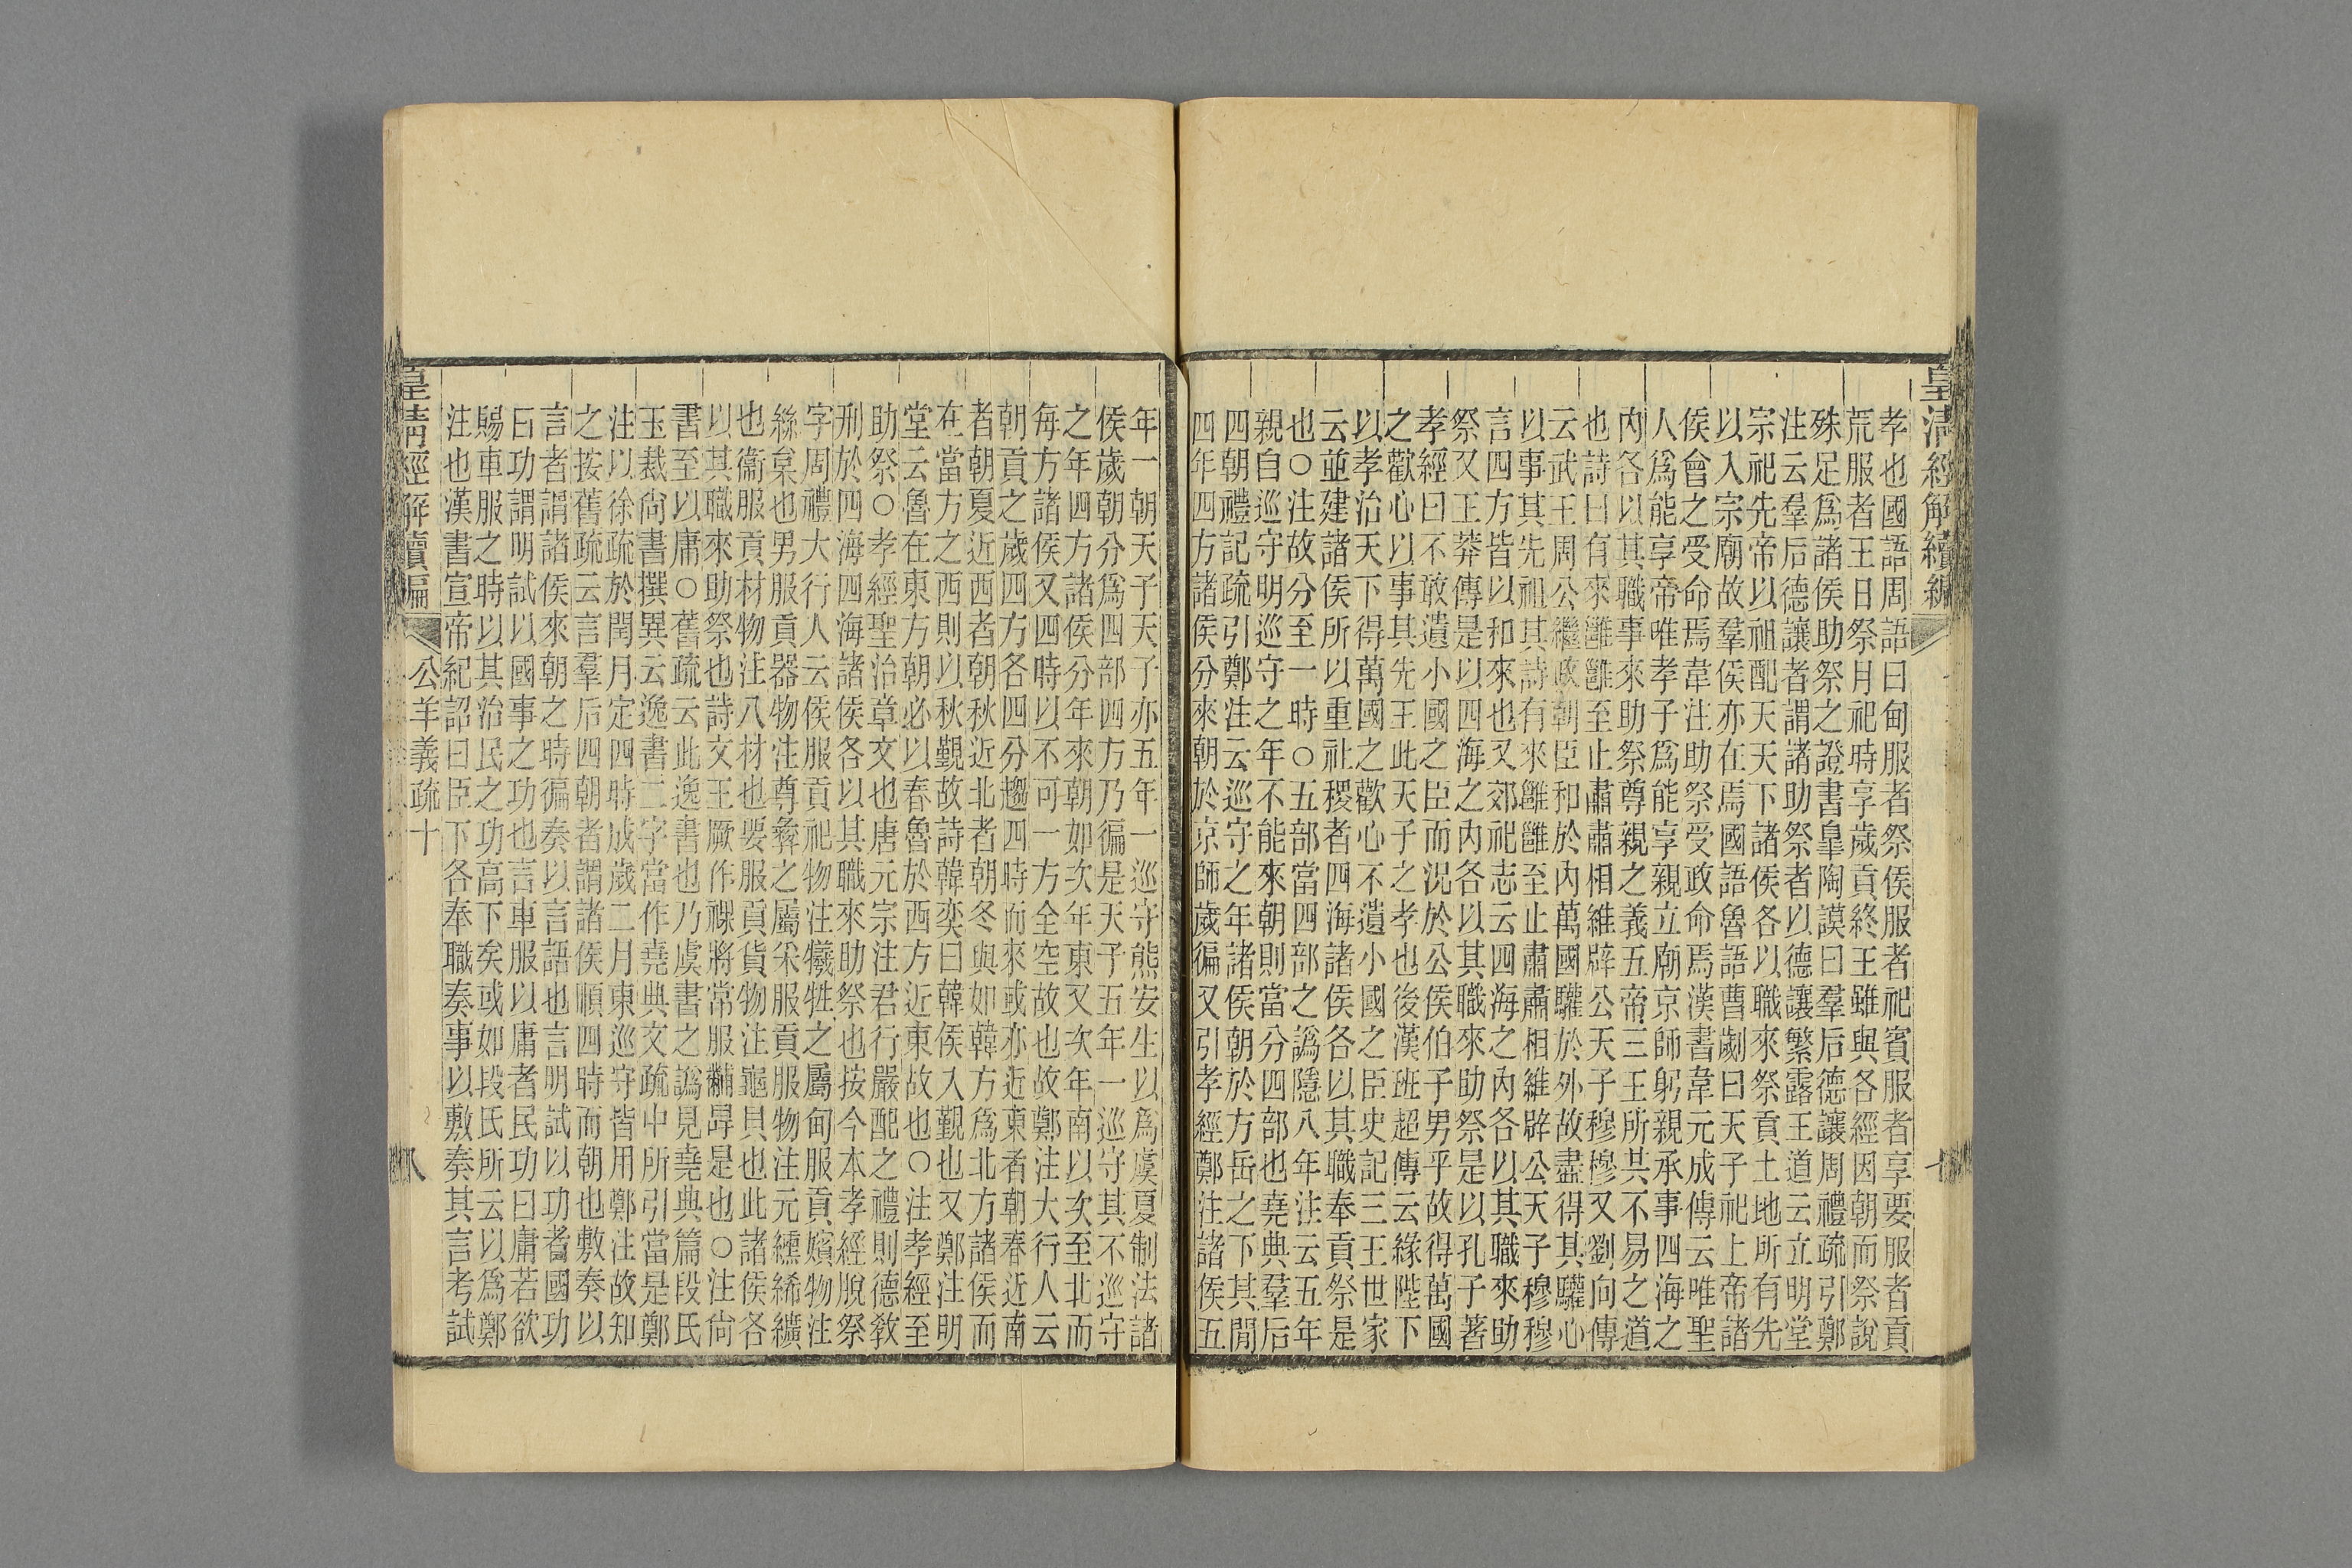 皇清經解續編
孝也國語周語曰甸服者祭侯服者祀賓服者享要服者貢
荒服者王日祭月祀時享歲貢終王雖與各經因朝而祭說
殊足爲諸侯助祭之證書皐陶謨曰羣后德讓周禮疏引鄭
注云羣后德讓者謂諸助祭者以德讓繁露王道云立明堂
宗祀先帝以祖配天天下諸侯各以職來祭貢土地所有先
以入宗廟故羣侯亦在焉國語魯語曹劌曰天子祀上帝諸
侯會之受命焉韋注助祭受政命焉漢書韋元成傳云唯聖
人爲能享帝唯孝子爲能享親立廟京師躬親承事四海之
內各以其職事來助祭尊親之義五帝三王所共不易之道
也詩曰有來雝雝至止肅肅相維辟公天子穆穆又劉向傳
云武王周公繼政朝臣和於內萬國驩於外故盡得其驩心
以事其先祖其詩有來雝雝至止肅肅相維辟公天子穆穆
言四方皆以和來也又郊祀志云四海之內各以其職來助
祭又王莽傳是以四海之內各以其職來助祭是以孔子著
孝經曰不敢遺小國之臣而況於公侯伯子男乎故得萬國
之歡心以事其先王此天子之孝也後漢班超傳云緣陛下
以孝治天下得萬國之歡心不遺小國之臣史記三王世家
云並建諸侯所以重社稷者四海諸侯各以其職奉貢祭是
也○注故分至一時○五部當四部之譌隱八年注云五年
親自巡守明巡守之年不能來朝則當分四部也堯典羣后
四朝禮記疏引鄭注云巡守之年諸侯朝於方岳之下其閒
四年四方諸侯分來朝於京師歲徧又引孝經鄭注諸侯五
年一朝天子天子亦五年一巡守熊安生以爲虞夏制法諸
侯歲朝分爲四部四方乃徧是天子五年一巡守其不巡守
之年四方諸侯分年來朝如次年東又次年南以次至北而
每方諸侯又四時以不可一方全空故也故鄭注大行人云
朝貢之歲四方各四分趨四時而來或亦近東者朝春近南
者朝夏近西者朝秋近北者朝冬與如韓方爲北方諸侯而
在當方之西則以秋覲故詩韓奕曰韓侯入覲也又鄭注明
堂云魯在東方朝必以春魯於西方近東故也○注孝經至
助祭○孝經聖治章文也唐元宗注君行嚴配之禮則德敎
刑於四海四海諸侯各以其職來助祭也按今本孝經脫祭
字周禮大行人云侯服貢祀物注犧牲之屬甸服貢嬪物注
絲枲也男服貢器物注尊彝之屬采服貢服物注元纁絺纊
也衞服貢材物注八材也要服貢貨物注龜貝也此諸侯各
以其職來助祭也詩文王厥作祼將常服黼冔是也○注尙
書至以庸○舊疏云此逸書也乃虞書之譌見堯典篇段氏
玉裁尙書撰異云逸書二字當作堯典文疏中所引當是鄭
注以徐疏於閏月定四時成歲二月東巡守皆用鄭注故知
之按舊疏云言羣后四朝者謂諸侯順四時而朝也敷奏以
言者謂諸侯來朝之時徧奏以言語也言明試以功者國功
曰功謂明試以國事之功也言車服以庸者民功曰庸若欲
賜車服之時以其治民之功高下矣或如段氏所云以爲鄭
注也漢書宣帝紀詔曰臣下各奉職奏事以敷奏其言考試
皇清經解續編 公羊義疏十 八